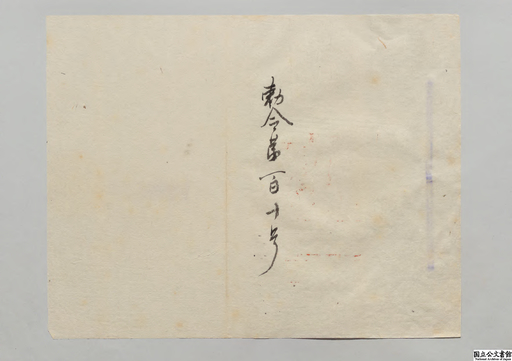 勅令第一百十号
国立公文書館
National Archives of Japan